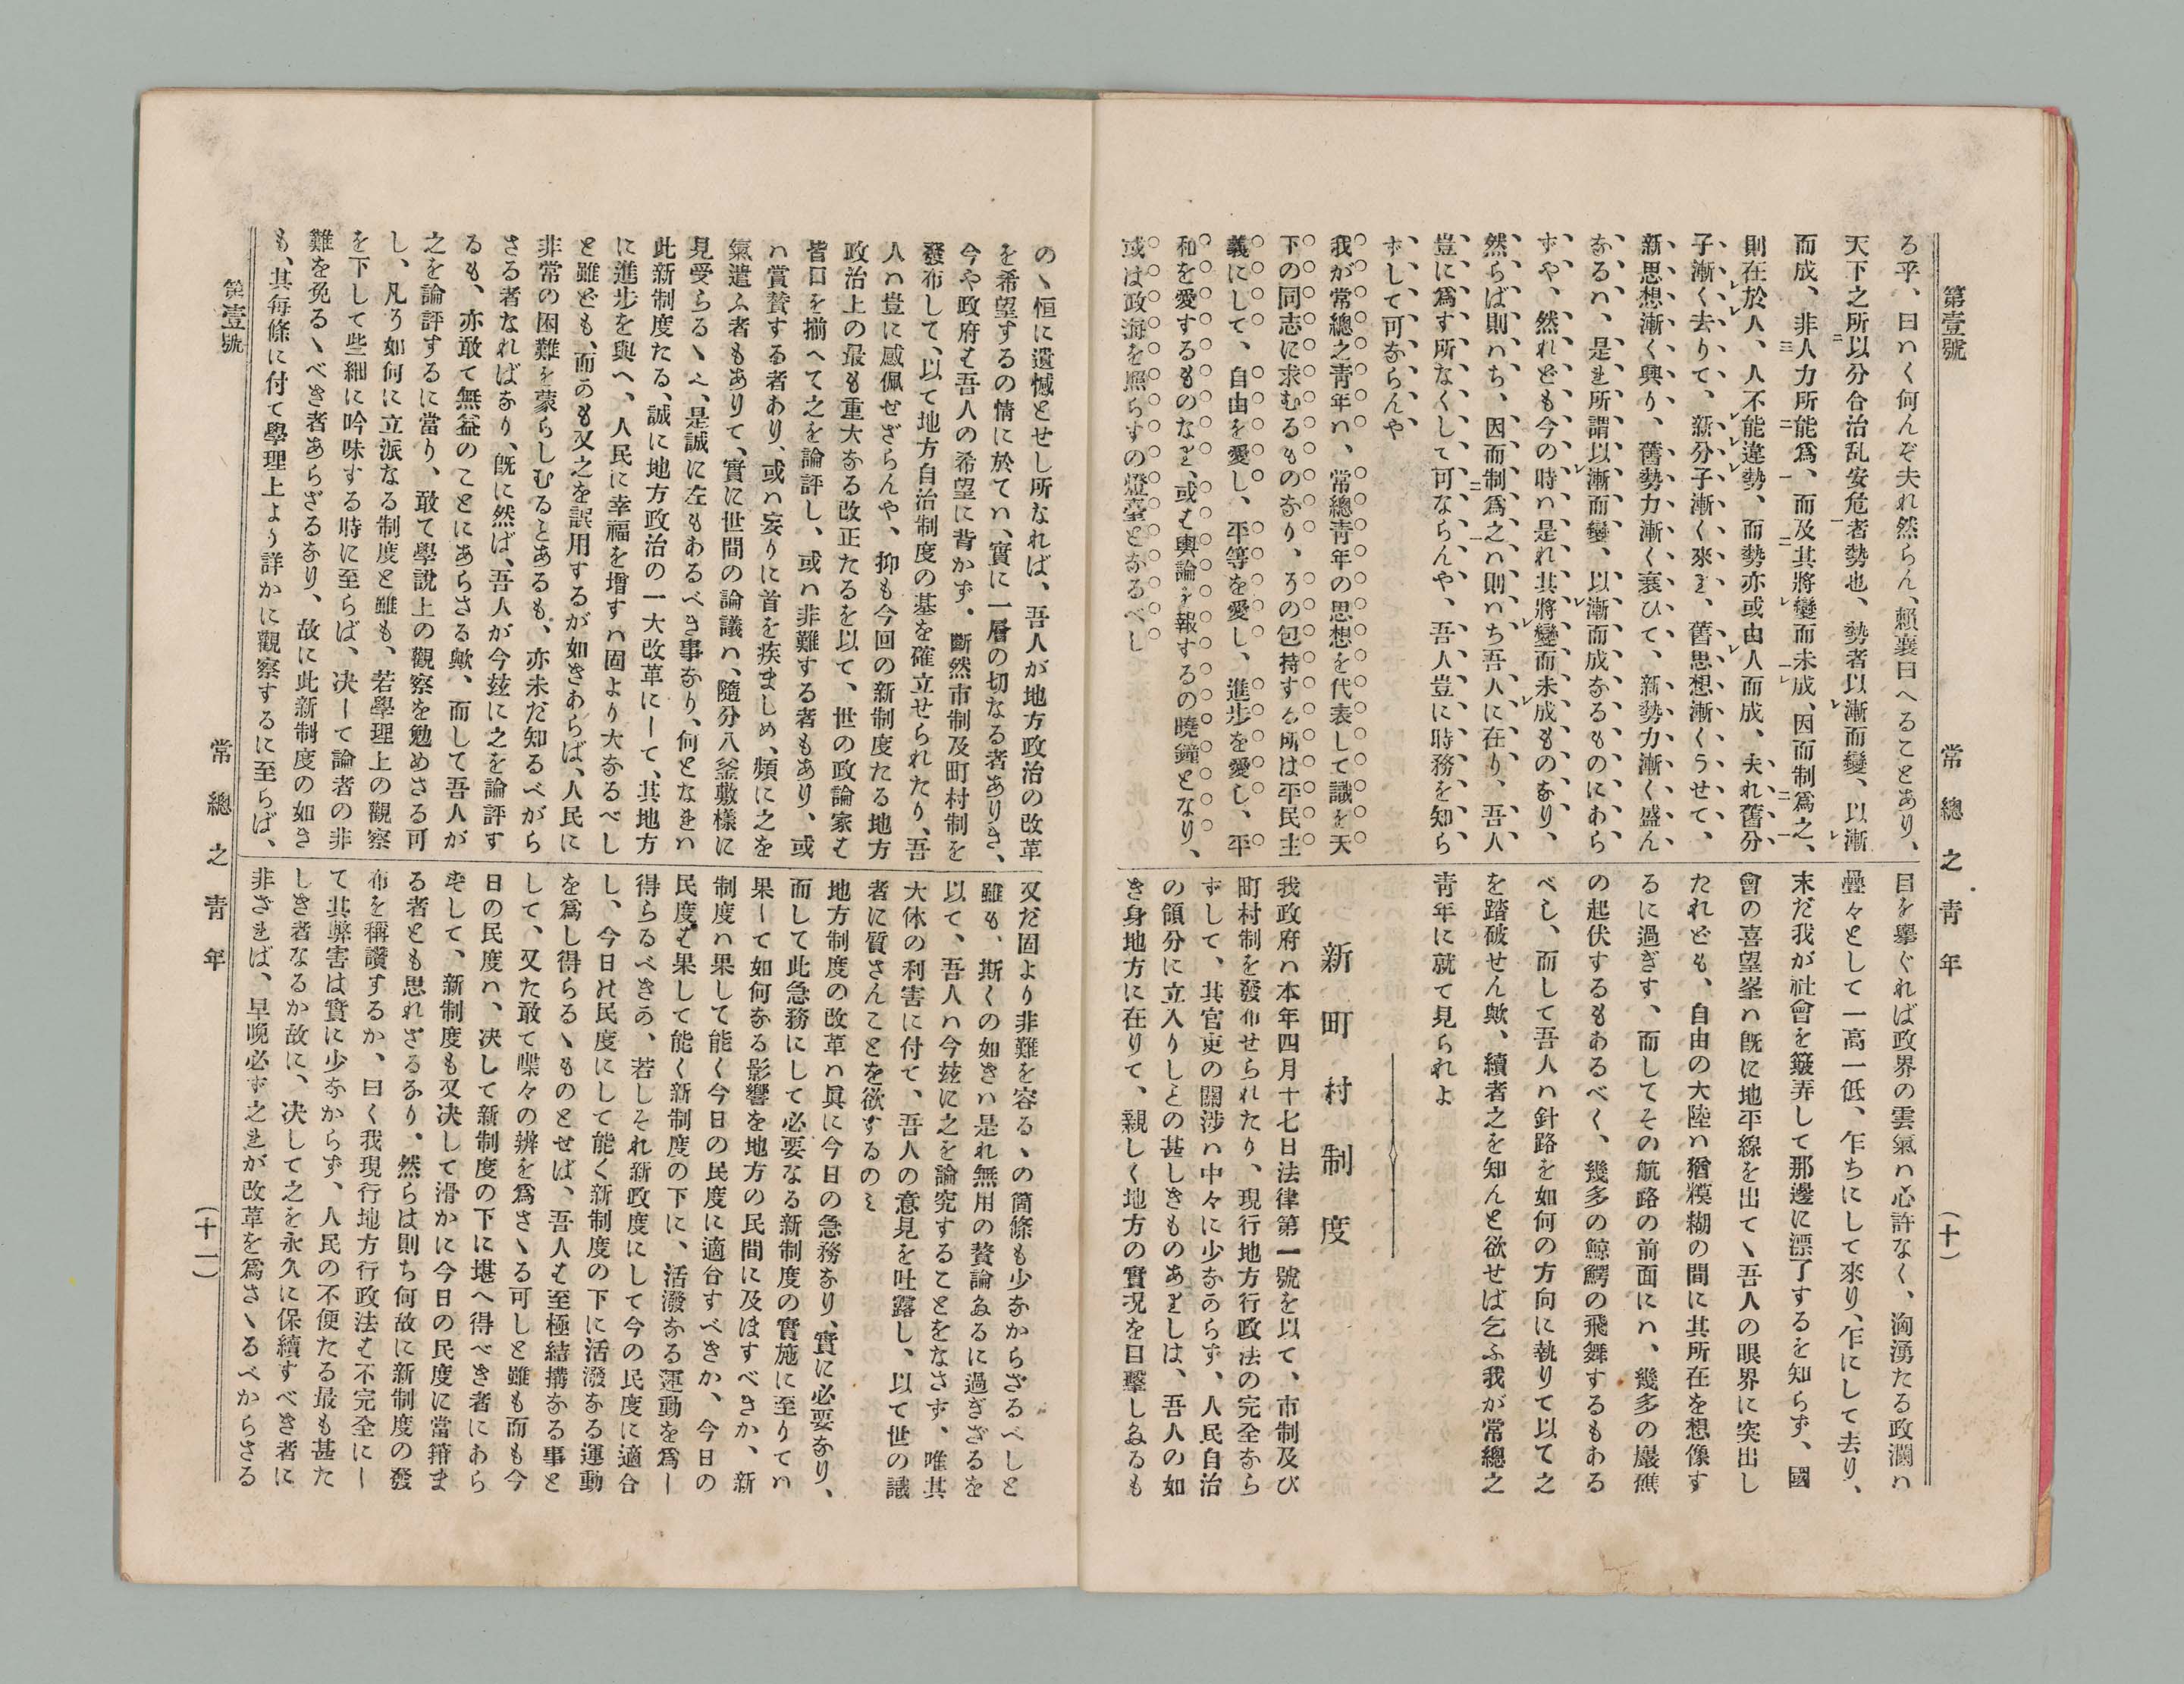 第壹號
常總之青年
(十)
る乎、曰ハく何んぞ夫れ然らん、賴襄曰へることあり、
天下之所以分合治乱安危者勢也、勢者以漸而變、以漸
而成、非人力所能爲、而及其將變而未成、因而制爲之、
則在於人、人不能違勢、而勢亦或由人而成、夫れ舊分
子漸く去りて、新分子漸く來り、舊思想漸くうせて、
新思想漸く興り、舊勢力漸く衰ひて、新勢力漸く盛ん
なるハ、是れ所謂以漸而變、以漸而成なるものにわら
ずや、然れども今の時ハ是れ其將變而未成ものなり、
然らば則ハち、因而制爲之ハ則ハち吾人に在り、吾人
豈に爲す所なくして可ならんや、吾人豈に時務を知ら
ずして可ならんや
我が常總之青年ハ、常總青年の思想を代表して識を天
下の同志に求むるものなり、その包持する所は平民主
義にして、自由を愛し、平等を愛し、進步を愛し、平
和を愛するものなり、或も輿論を報するの曉鐘となり、
或は政海を照らすの燈臺となるべし
目を擧ぐれば政界の雲氣ハ心許なく、洶湧たる政瀾ハ
疊々として一高一低、乍ちにして來り、乍にして去り、
末だ我が社會を簸弄して那邊に漂了するを知らず、國
會の喜望峯ハ既に地平線を出てヽ吾人の眼界に突出し
たれども、自由の大陸ハ猶糢糊の間に其所在を想像す
るに過ぎす、而してその航路の前面にハ、幾多の巖礁
の起伏するもあるべく、幾多の鯨鰐の飛舞するもある
べし、而して吾人ハ針路を如何の方向に執りて以て之
を踏破せん歟、續者之を知んと欲せば乞ふ我が常總之
青年に就て見られよ
新町村制度
我政府ハ本年四月十七日法律第一號を以て、市制及び
町村制を發布せられたり、現行地方行政法の完全なら
ずして、其官吏の關涉ハ中々に少なからず、人民自治
の領分に立入りしとの甚しきものありしは、吾人の如
き身地方に在りて、親しく地方の實况を目擊しゐるも
のヽ恒に遺憾とせし所なれば、吾人が地方政治の改革
を希望するの情に於てハ、實に一層の切なる者ありき、
今や政府も吾人の希望に背かず。斷然市制及町村制を
發布して、以て地方自治制度の基を確立せられたり、吾
人ハ豈に感佩せざらんや、抑も今回の新制度たる地方
政治上の最も重大なる改正たるを以て、世の政論家も
皆口を揃へて之を論評し、或ハ非難する者もあり、或
ハ賞賛する者あり、或ハ妄りに首を疾ましめ、頻に之を
氣遣ふ者もありて、實に世間の論議ハ、隨分八釜敷樣に
見受らるヽハ、是誠に左もわるべき事なり、何となれハ
此新制度たる、誠に地方政治の一大改革にして、其地方
に進步を與へ、人民に幸福を增すハ固より大なるべし
と雖ども、而かも又之を誤用するが如きわらば、人民に
非常の困難を蒙らしむるとあるも、亦未だ知るべがら
さる者なればなり、既に然ば、吾人が今玆に之を論評す
るも、亦敢て無益のことにあらさる歟、而して吾人が
之を論評するに當り、敢て學說上の觀察を勉めさる可
し、凡そ如何に立派なる制度と雖も、若學理上の觀察
を下して些細に吟味する時に至らば、决して論者の非
難を免るヽべき者あらざるなり、故に此新制度の如き
も、其每條に付て學理上より詳かに觀察するに至らば、
又だ固より非難を容るヽの箇條も少なからざるべしと
雖も、斯くの如きハ是れ無用の贅論ゐるに過ぎざるを
以て、吾人ハ今玆に之を論究することをなさず、唯其
大体の利害に付て、吾人の意見を吐露し、以て世の識
者に質さんことを欲するのミ
地方制度の改革ハ眞に今日の急務なり、實に必要なり、
而して此急務にして必要なる新制度の實施に至りてハ
果して如何なる影響を地方の民間に及はすべきか、新
制度ハ果して能く今日の民度に適合すべきか、今日の
民度も果して能く新制度の下に、活潑なる運動を爲し
得らるべきか、若しそれ新政度にして今の民度に適合
し、今日の民度にして能く新制度の下に活潑なる運動
を爲し得らるヽものとせば、吾人も至極結搆なる事と
して、又た敢て喋々の辨を爲さヽる可しと雖も而も今
日の民度ハ、决して新制度の下に堪へ得べき者にわら
ずして、新制度も又决して滑かに今日の民度に當箝ま
る者とも思れざるなり、然らは則ち何故に新制度の發
布を稱讚するか、曰く我現行地方行政法も不完全にし
て其弊害は實に少なからず、人民の不便たる最も甚た
しき者なるか故に、决して之を永久に保續すべき者に
非されば、早晩必ず之れが改革を爲さヽるべからさる
第壹號
常總之青年
(十一)